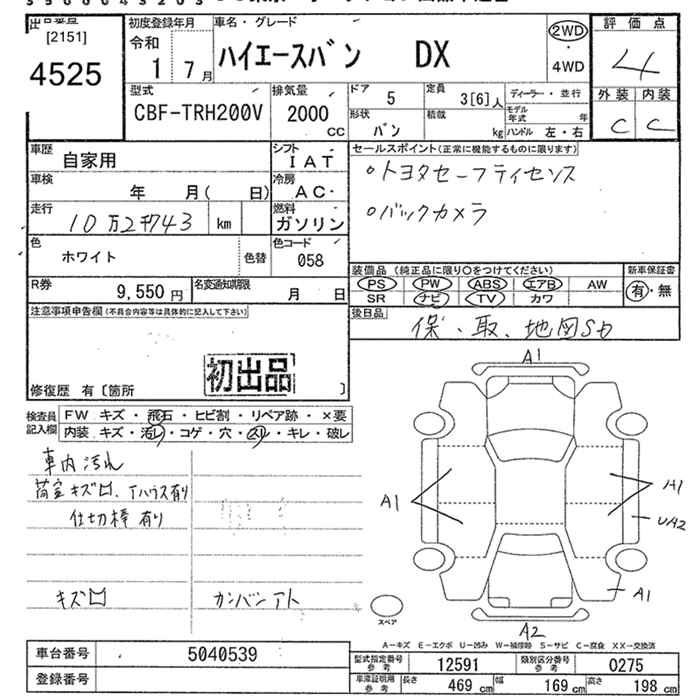 [2151]
4525
初度登録年月
令和
1 7月
車名・グレード
ハイエースバン DX
2WD
・
4WD
評価点
4
外装 内装
C C
型式
CBF-TRH200V
排気量
2000
CC
ドア 5
定員 3[6]人
ディーラー・並行
形状 バン
積載 kg
モデル年式 年
ハンドル 左・右
車歴 自家用
シフト IAT
車検 年 月( 日)
冷房 AC
走行 10万2千743 km
燃料 ガソリン
色 ホワイト
色替
色コード 058
R券 9,550円
名変通知期限 月 日
セールスポイント(正常に機能するものに限ります)
○トヨタセーフティセンス
○バックカメラ
装備品 (純正品に限り○をつけてください)
PS PW ABS エアB AW
SR ナビ TV カワ
新車保証書
有・無
後日品
保・取、地図SD
注意事項申告欄(不具合内容等は具体的に記入して下さい)
初出品
修復歴 有〔箇所 〕
検査員記入欄
FW キズ・飛石・ヒビ割・リペア跡・×要
内装 キズ・汚レ・コゲ・穴・ズレ・キレ・破レ
車内汚れ
荷室キズ凹、Tハウス有り
仕切棒有り
キズ凹
カンバンアト
A1
A1
A1
UA2
A1
A2
スペア
A-キズ E-エクボ U-凹み W-補修跡 S-サビ C-腐食 XX-交換済
車台番号 5040539
登録番号
型式指定番号参考 12591
類別区分番号参考 0275
車庫証明用参考 長さ 469cm 幅 169cm 高さ 198cm